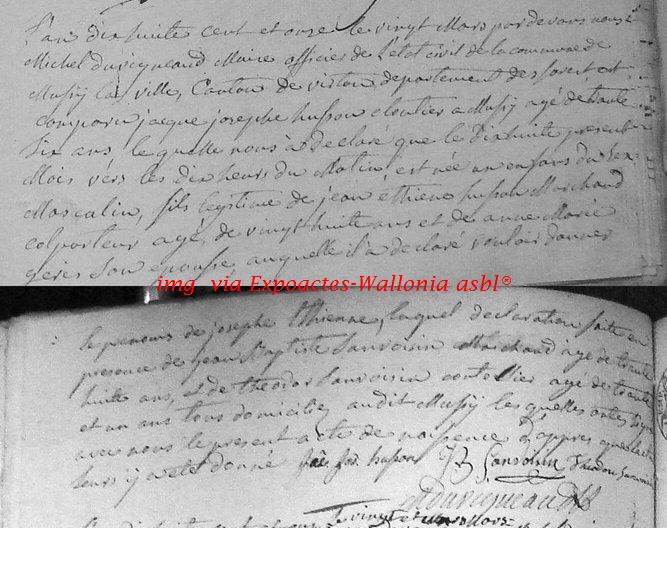 L'an dixhuite cent et onze le vingt Mars par devans nous
Michel Duvicqueaud Maire officier de l'etat civil de la commune de
Mussy la ville, Canton de virton, departement des forest est
comparu jacque josephe husson cloutier a Mussy agé de trante
Six ans le quelle nous à declaré que le dixhuite present
Mois vers les dix heurs du Matin, est née un enfans du Sex
Masculin, fils legitime de jean ethiene husson Marchand
colporteur agé de vingt huite ans et de anne Marie
son epousse auquelle il a declaré vouloir donner
img via Expoactes-Wallonia asbl®
le penoms de josephe Ethienne, laquel declaration faite en
presence de jean Baptiste Sanvoisin Marchand agé de trante
huite ans, et de theodor Sanvoisin agé de trante
et un ans tous domiciliez audit Mussy les quelles ont signé
avec nous le present acte de naissence d'appres que lecture
leurs y a eté donné jos husson JB Sanvoisin
Duvicqueaud
le vingt et un Mars